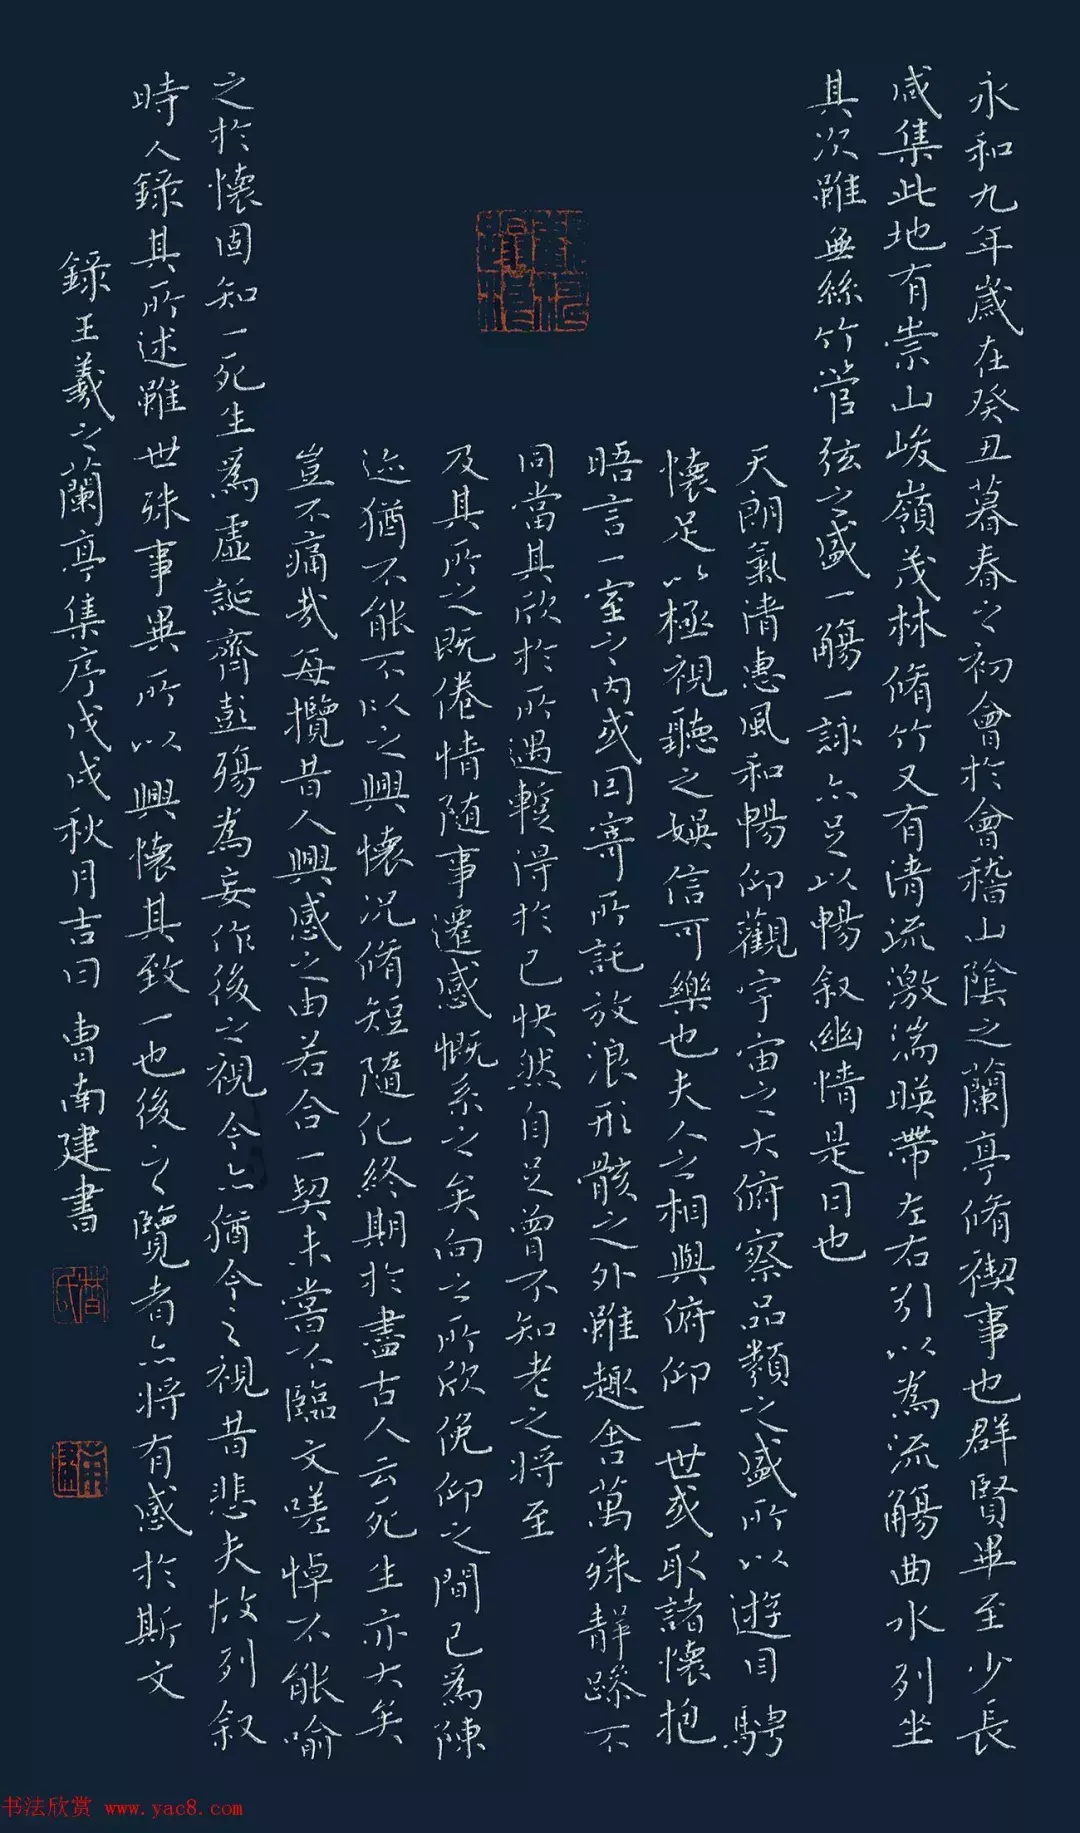 永和九年歲在癸丑暮春之初會於會稽山陰之蘭亭脩禊事也群賢畢至少長
咸集此地有崇山峻嶺茂林脩竹又有清流激湍暎帶左右引以為流觴曲水列坐
其次雖無絲竹管弦之盛一觴一詠亦足以暢叙幽情是日也
天朗氣清惠風和暢仰觀宇宙之大俯察品類之盛所以遊目騁
懷足以極視聽之娛信可樂也夫人之相與俯仰一世或取諸懷抱
晤言一室之內或因寄所託放浪形骸之外雖趣舍萬殊靜躁不
同當其欣於所遇蹔得於己快然自足曾不知老之將至
及其所之既倦情随事遷感慨系之矣向之所欣俛仰之間已為陳
迹猶不能不以之興懷況脩短隨化終期於盡古人云死生亦大矣
豈不痛哉每攬昔人興感之由若合一契未嘗不臨文嗟悼不能喻
之於懷固知一死生為虛誕齊彭殤為妄作後之視今亦猶今之視昔悲夫故列叙
時人錄其所述雖世殊事異所以興懷其致一也後之覽者亦將有感於斯文
錄王羲之蘭亭集序戊戌秋月吉日 曹南建書
书法欣赏 www.yac8.com